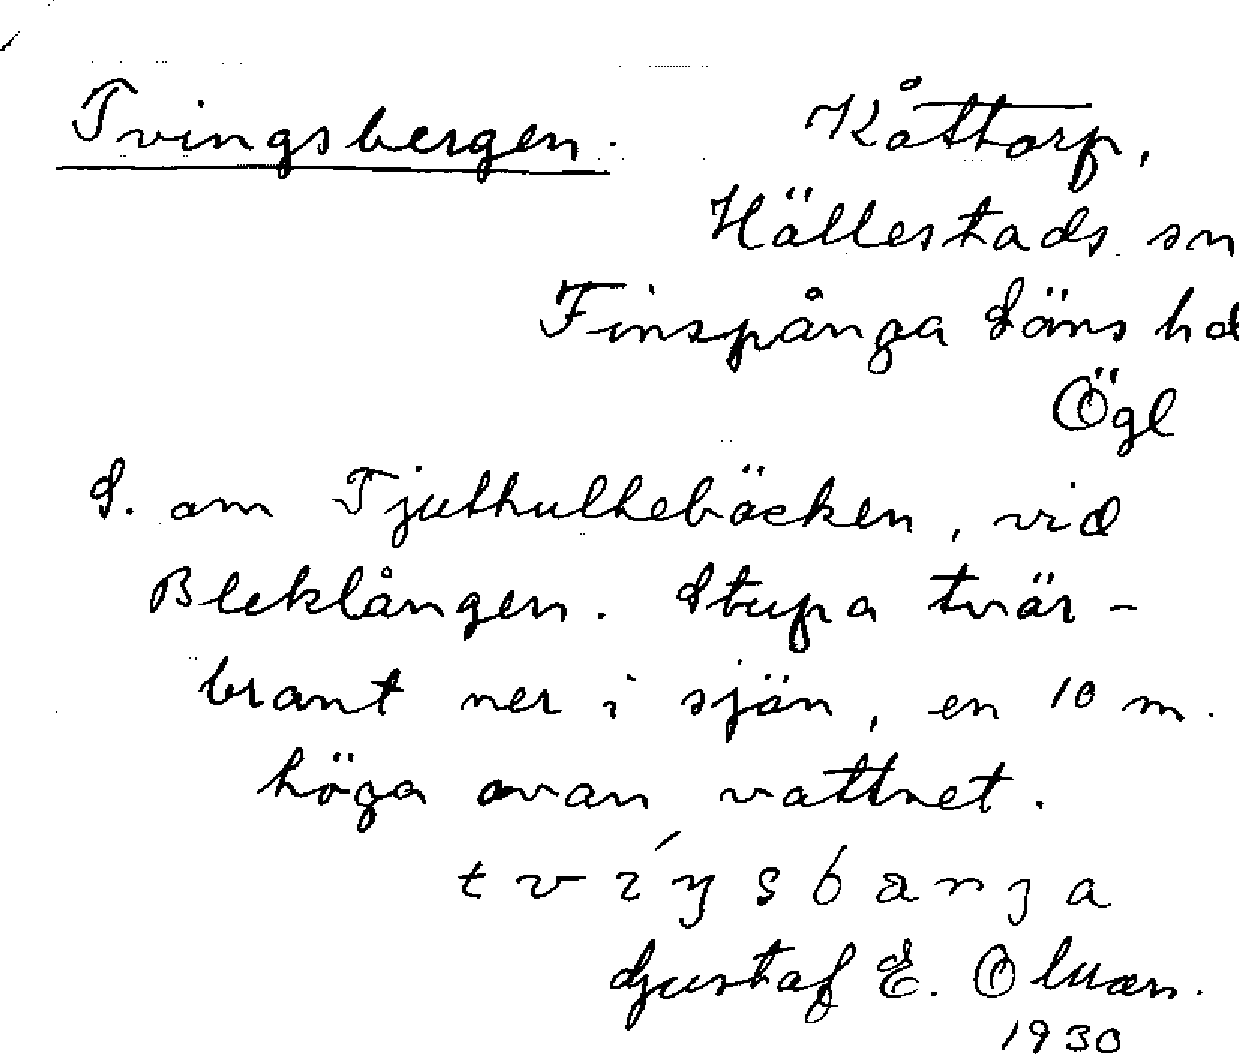 Tvingsbergen. Kåttorp,
Hällestads sn
Finspånga Läns hd
Ögl
S. om Tjuthultebäcken, vid
Bleklången. Stupa tvär-
brant ner i sjön, en 10 m.
höga ovan vattnet.
Gustaf E. Olsson.
1930